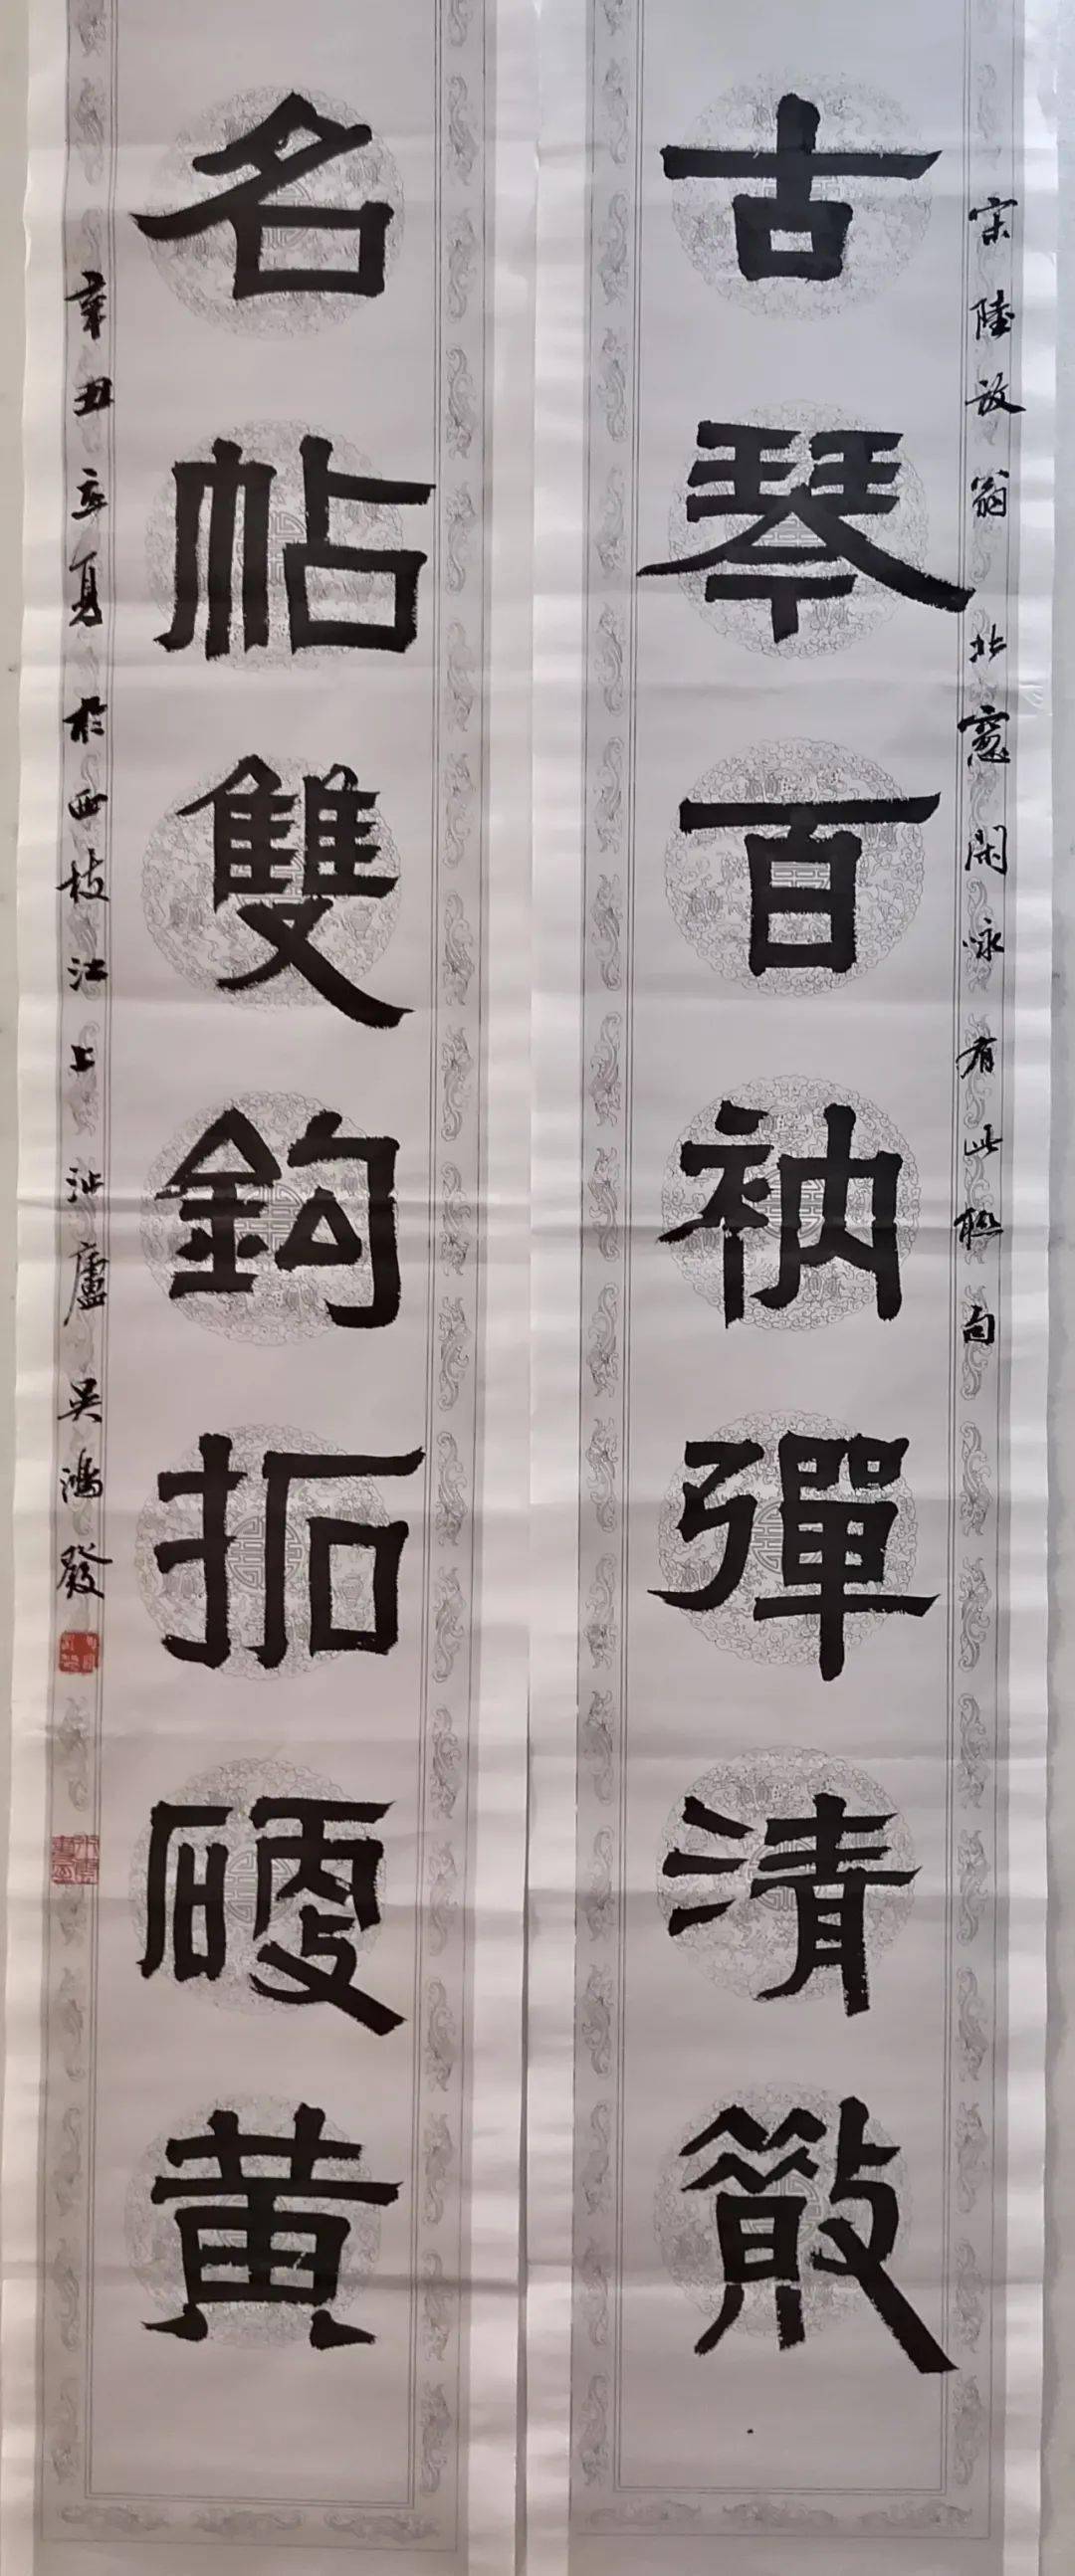 宋陸放翁北窻閑咏有此聯句
古琴百衲彈清散
名帖雙鈎拓硬黄
辛丑立夏於西枝江上沚廬吳鴻發